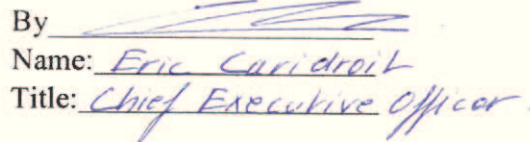 By
Name: Eric Caridroit
Title: Chief Executive Officer